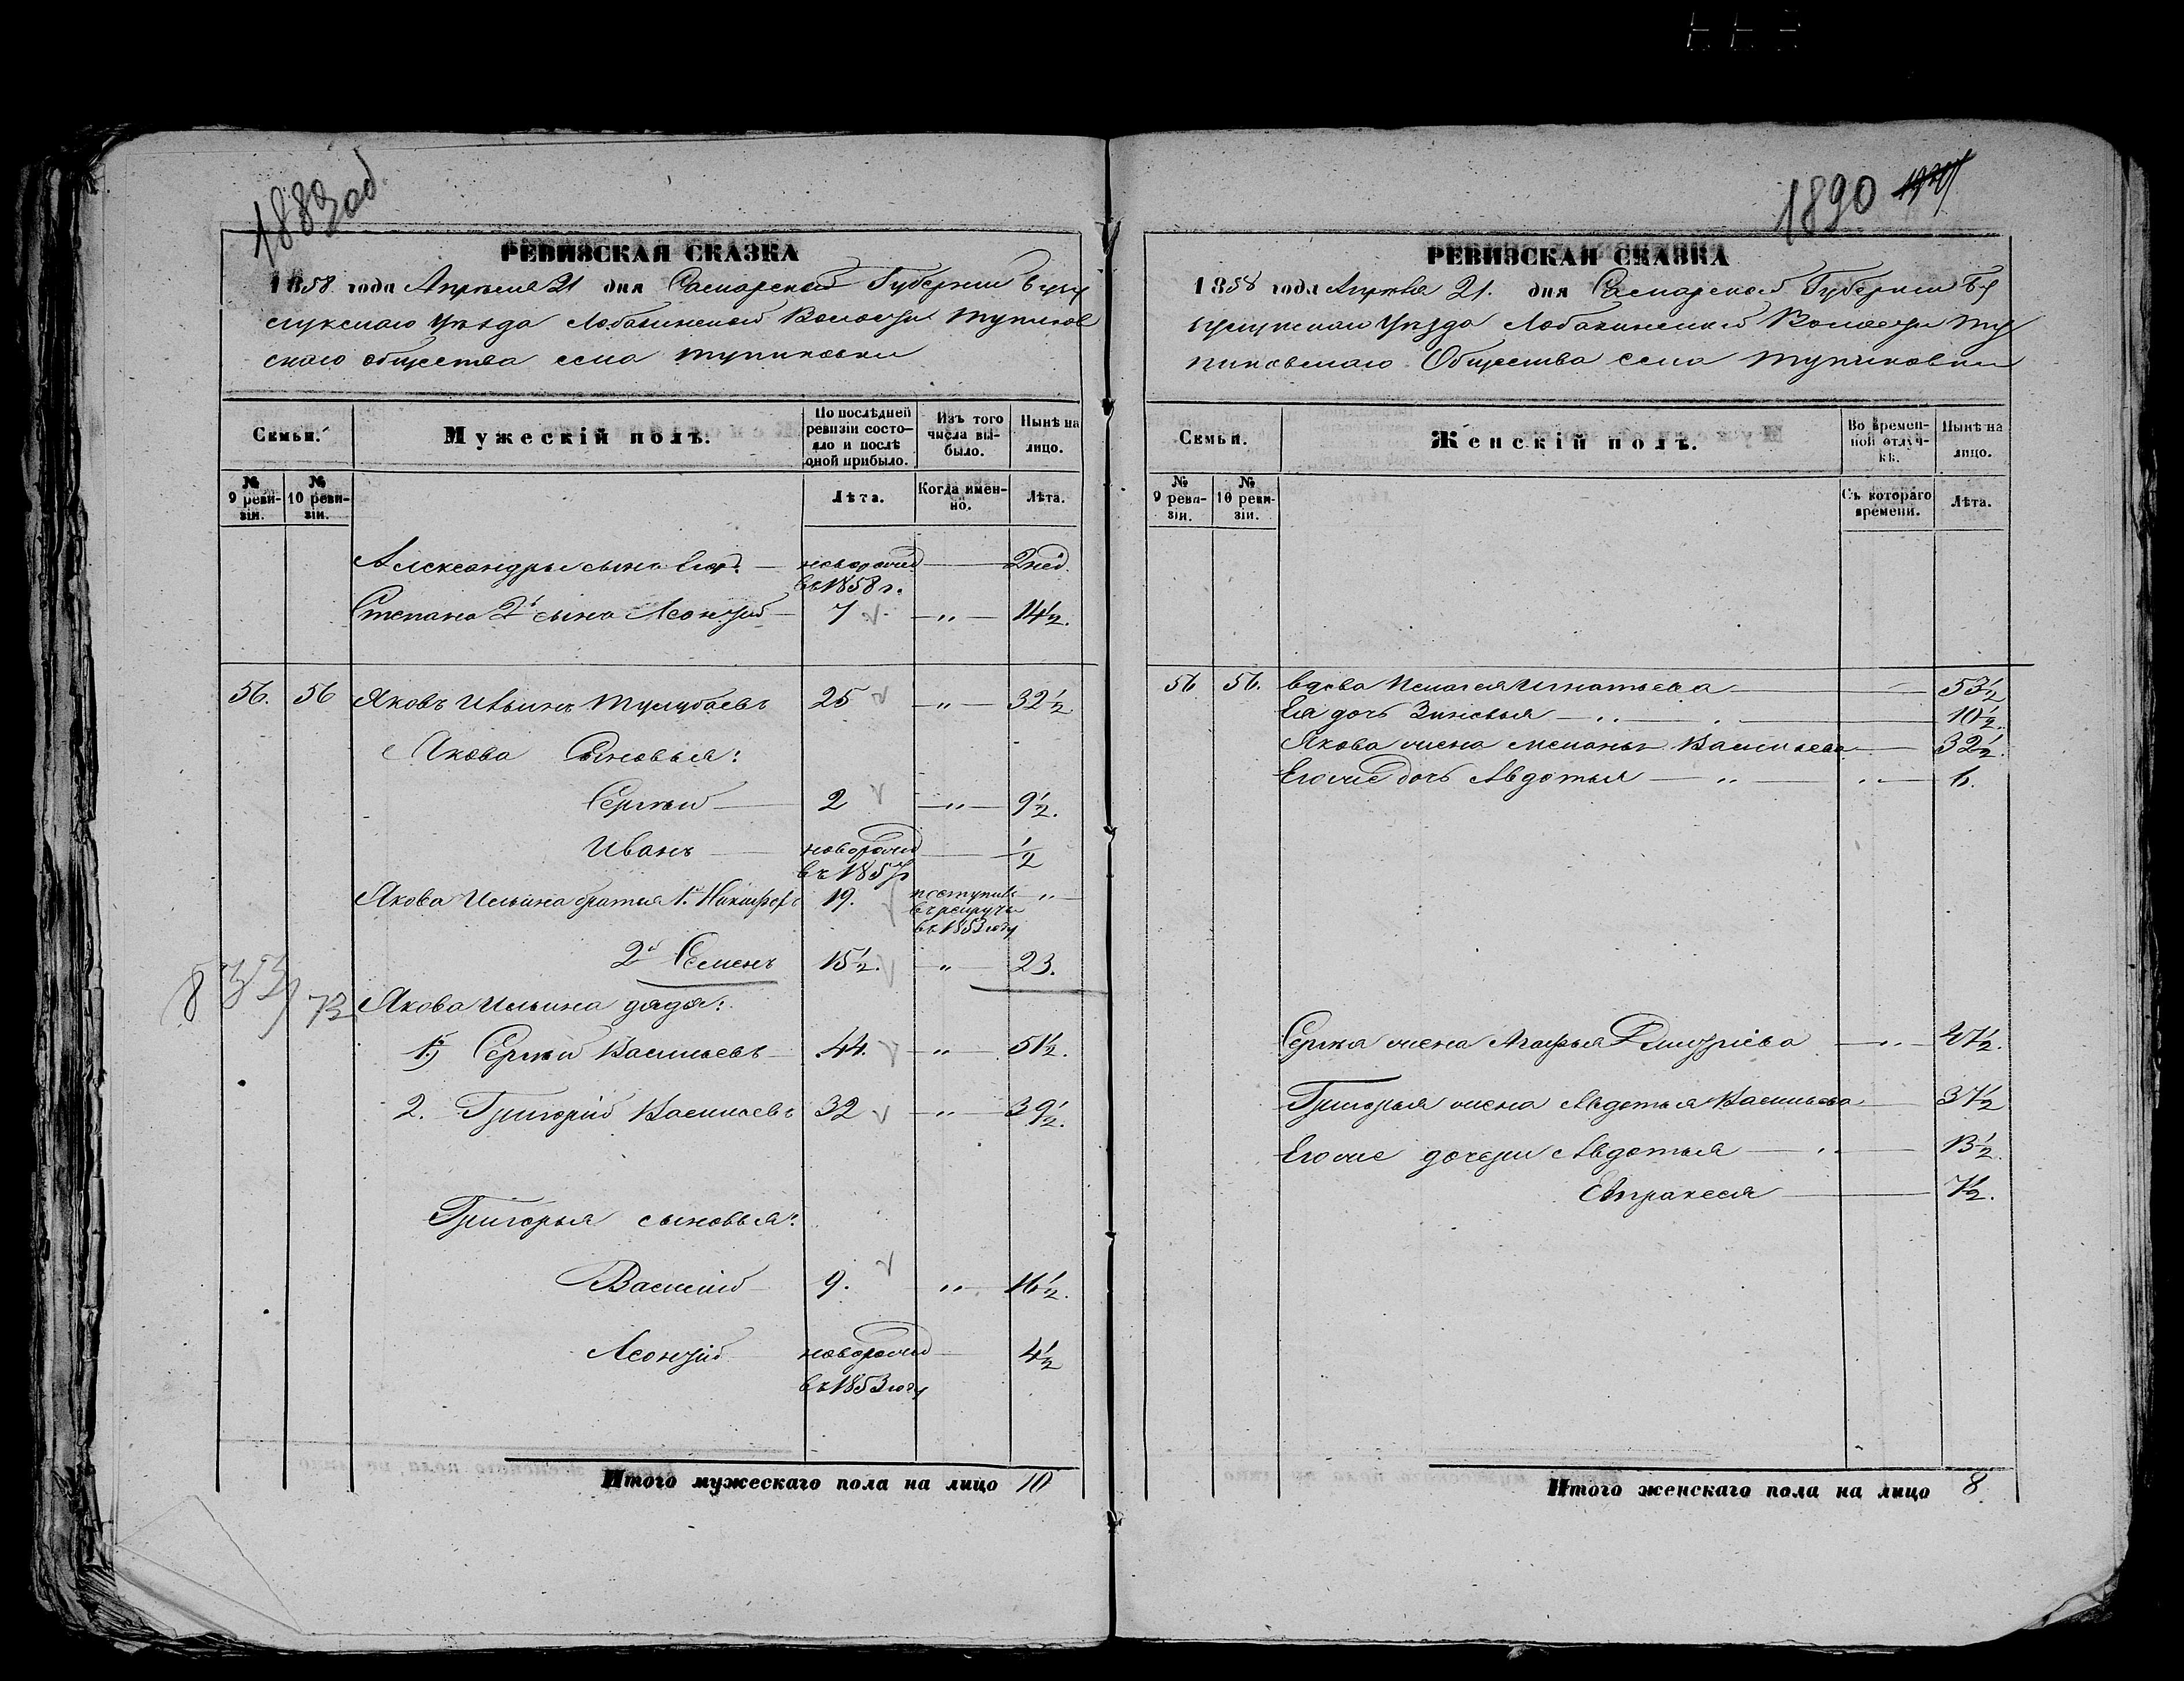 1889 об.
РЕВИЗСКАЯ СКАЗКА
1858 года Апреля 21 дня Самарской Губернии Бугу
сло уезда Волости Тупиков
скаго общества села Тупиковки
Семьи.
Мужескій полъ.
По послѣдней ревизіи состояло и послѣ оной прибыло.
Изъ того числа выбыло.
Нынѣ на лицо.
№ 9 ревизіи.
№ 10 ревизіи.
Лѣта.
Когда именно.
Лѣта.
Александры сынъ — новорожд — 2 нед.
въ 1858 г.
Степана 2й сынъ Леонтій — 7 — " — 14½.
56. 56 Яковъ Ильинъ 25 — " — 32½
Якова Сыновья:
Сергѣй — 2 — " — 9½.
Иванъ — новорожд — ½
въ 1857
Якова Ильина братья 1й Никифоръ 19. поступилъ въ рекруты въ 1853 году — " —
2й Семенъ 15½. — " — 23.
Якова Ильина дядья:
1й) Сергѣй Васильевъ — 44. — " — 51½.
2. Григорій Васильевъ 32 — " — 39½.
Григорья сыновья:
Василій — 9. " — 16½.
Леонтій — новорожд — 4½
въ 1853 году
Итого мужескаго пола на лицо 10
1890
РЕВИЗСКАЯ СКАЗКА
1858 года Апреля 21. дня Самарской Губернии Бу
гурусланскаго уезда Волости Ту
пиковскаго Общества села Тупиковки
Семьи.
Женскій полъ.
Во временной отлучкѣ.
Нынѣ на лицо.
№ 9 ревизіи.
№ 10 ревизіи.
Съ котораго времени.
Лѣта.
56 56. вдова Пелагея Игнатьева — 53½
Ея дочь Зиновья — " — 10½.
Якова жена Меланья Васильева — 32½.
Его же дочь Авдотья — " — 6.
Сергѣя жена Агафья Дмитріева — " — 47½.
Григорья жена Авдотья Васильева — 37½
Его же дочери Авдотья — " — 13½.
Евпраксея — 7½.
Итого женскаго пола на лицо 8.